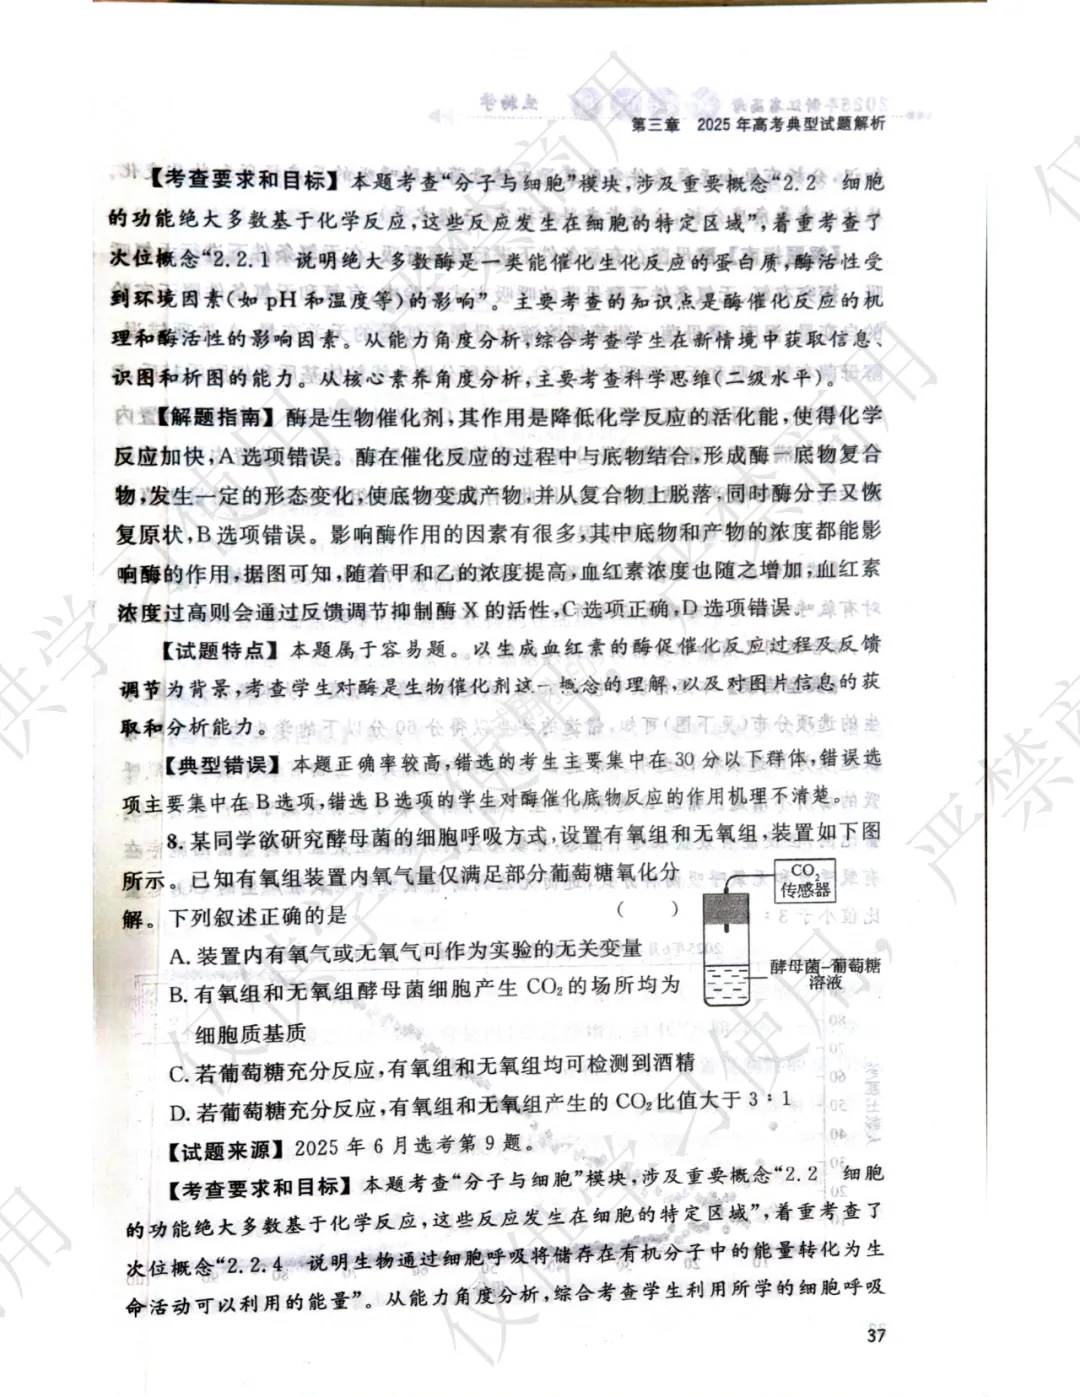 第三章 2025年高考典型试题解析
【考查要求和目标】本题考查“分子与细胞”模块,涉及重要概念“2.2 细胞
的功能绝大多数基于化学反应,这些反应发生在细胞的特定区域”,着重考查了
次位概念“2.2.1 说明绝大多数酶是一类能催化生化反应的蛋白质,酶活性受
到环境因素(如pH和温度等)的影响”。主要考查的知识点是酶催化反应的机
理和酶活性的影响因素。从能力角度分析,综合考查学生在新情境中获取信息、
识图和析图的能力。从核心素养角度分析,主要考查科学思维(二级水平)。
【解题指南】酶是生物催化剂,其作用是降低化学反应的活化能,使得化学
反应加快,A选项错误。酶在催化反应的过程中与底物结合,形成酶—底物复合
物,发生一定的形态变化,使底物变成产物,并从复合物上脱落,同时酶分子又恢
复原状,B选项错误。影响酶作用的因素有很多,其中底物和产物的浓度都能影
响酶的作用,据图可知,随着甲和乙的浓度提高,血红素浓度也随之增加,血红素
浓度过高则会通过反馈调节抑制酶X的活性,C选项正确,D选项错误。
【试题特点】本题属于容易题。以生成血红素的酶促催化反应过程及反馈
调节为背景,考查学生对酶是生物催化剂这一概念的理解,以及对图片信息的获
取和分析能力。
【典型错误】本题正确率较高,错选的考生主要集中在30分以下群体,错误选
项主要集中在B选项,错选B选项的学生对酶催化底物反应的作用机理不清楚。
8.某同学欲研究酵母菌的细胞呼吸方式,设置有氧组和无氧组,装置如下图
所示。已知有氧组装置内氧气量仅满足部分葡萄糖氧化分
解。下列叙述正确的是 ( )
A.装置内有氧气或无氧气可作为实验的无关变量
B.有氧组和无氧组酵母菌细胞产生CO₂的场所均为
细胞质基质
C.若葡萄糖充分反应,有氧组和无氧组均可检测到酒精
D.若葡萄糖充分反应,有氧组和无氧组产生的CO₂比值大于3∶1
CO₂
传感器
酵母菌–葡萄糖
溶液
【试题来源】2025年6月选考第9题。
【考查要求和目标】本题考查“分子与细胞”模块,涉及重要概念“2.2 细胞
的功能绝大多数基于化学反应,这些反应发生在细胞的特定区域”,着重考查了
次位概念“2.2.4 说明生物通过细胞呼吸将储存在有机分子中的能量转化为生
命活动可以利用的能量”。从能力角度分析,综合考查学生利用所学的细胞呼吸
37
仅供学习使用,严禁商用